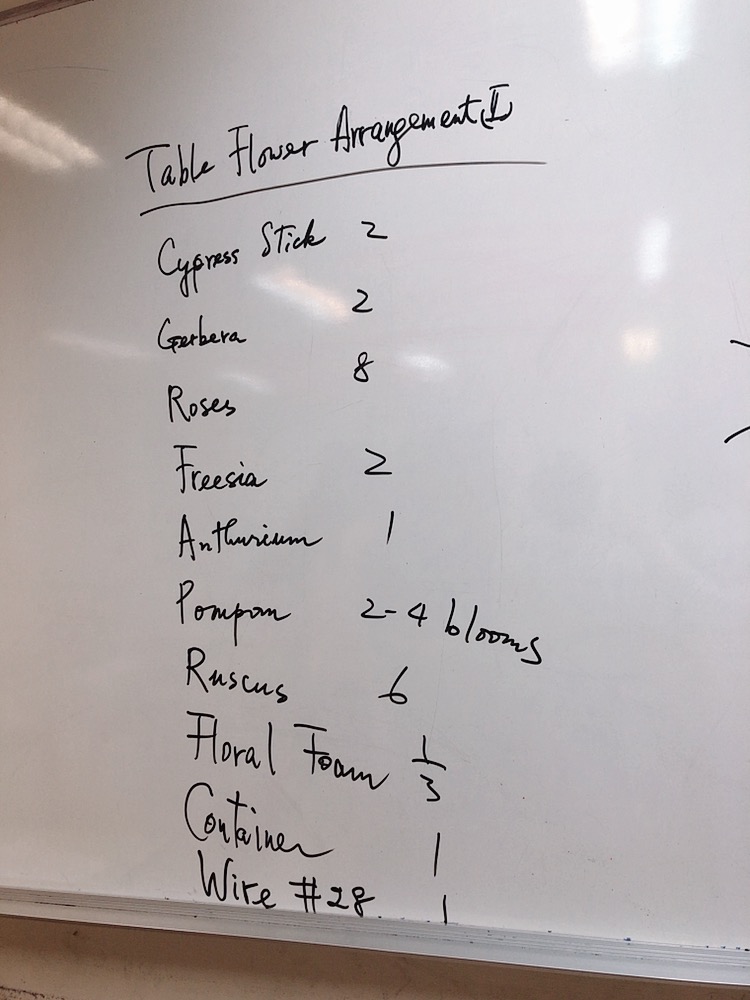 Table Flower Arrangement II
Cypress Stick 2
Gerbera 2
Roses 8
Freesia 2
Anthurium 1
Pompom 2-4 blooms
Ruscus 6
Floral Foam 1/3
Container 1
Wire #28 1